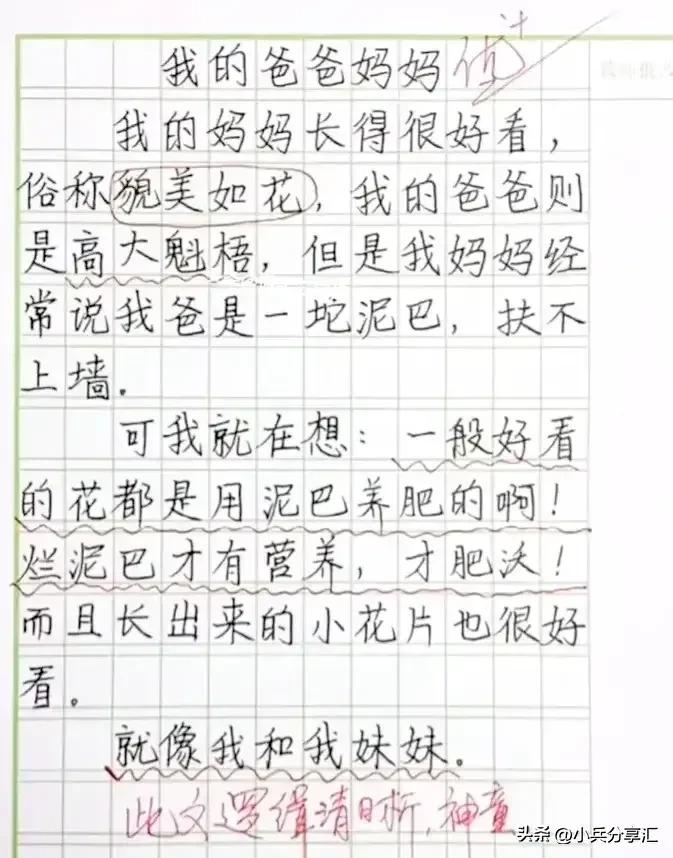 我的爸爸妈妈 优+
我的妈妈长得很好看，
俗称貌美如花，我的爸爸则
是高大魁梧，但是我妈妈经
常说我爸是一坨泥巴，扶不
上墙.
可我就在想：一般好看
的花都是用泥巴养肥的啊！
烂泥巴才有营养，才肥沃！
而且长出来的小花片也很好
看。
就像我和我妹妹.
此文逻缉清晰,神童
头条 @小兵分享汇